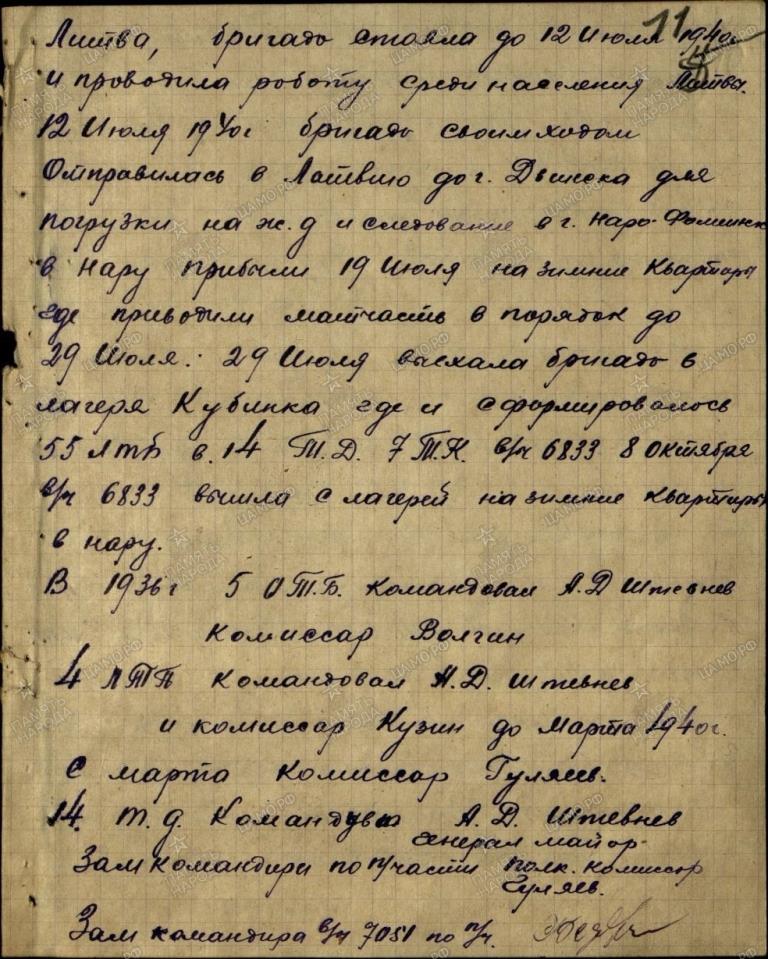 11
Литва, бригада стояла до 12 Июля 1940г
и проводила работу среди населения Литвы.
12 Июля 1940г бригада своим ходом
Отправилась в Латвию до г. Двинска для
погрузки на ж.д и следование в г. Наро-Фоминск
в Нару прибыли 19 Июля на зимние квартиры
где приводили матчасть в порядок до
29 Июля. 29 Июля выехала бригада в
лагеря Кубинка где и сформировалось
55 лтб в. 14 Т.Д. 7 Т.К. в/ч 6833 8 октября
в/ч 6833 вышла с лагерей на зимние квартиры
в нару.
В 1936г 5 О Т.Б. командовал А.Д Штевнев
комиссар Волгин
4 ЛТП командовал А.Д. Штевнев
и комиссар Кузин до Марта 1940г.
С марта комиссар Гуляев.
14. т.д. Командует А.Д. Штевнев
генерал майор.
Зам командира по п/части полк. комиссар
Гуляев.
Зам командира в/ч 7051 по п/ч.